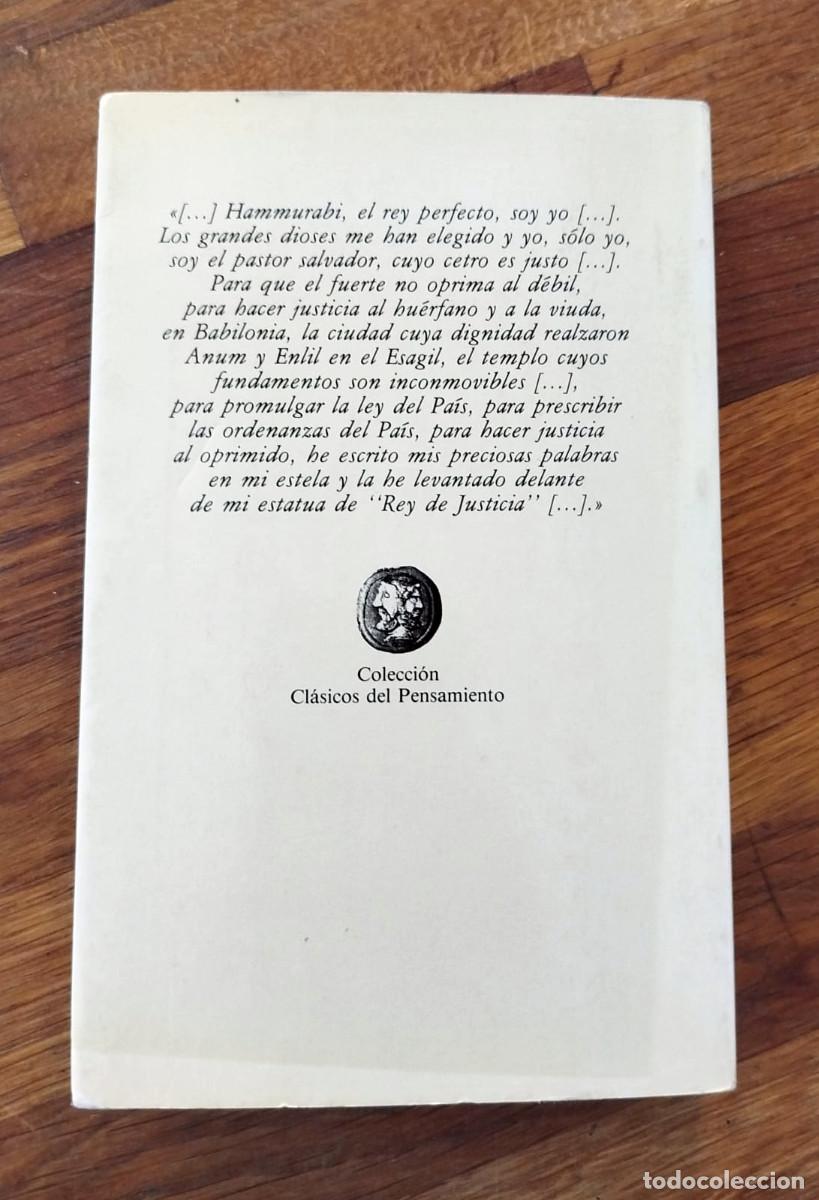 «[...] Hammurabi, el rey perfecto, soy yo [...].
Los grandes dioses me han elegido y yo, sólo yo,
soy el pastor salvador, cuyo cetro es justo [...].
Para que el fuerte no oprima al débil,
para hacer justicia al huérfano y a la viuda,
en Babilonia, la ciudad cuya dignidad realzaron
Anum y Enlil en el Esagil, el templo cuyos
fundamentos son inconmovibles [...],
para promulgar la ley del País, para prescribir
las ordenanzas del País, para hacer justicia
al oprimido, he escrito mis preciosas palabras
en mi estela y la he levantado delante
de mi estatua de ‘‘Rey de Justicia’’ [...].»
Colección
Clásicos del Pensamiento
todocoleccion